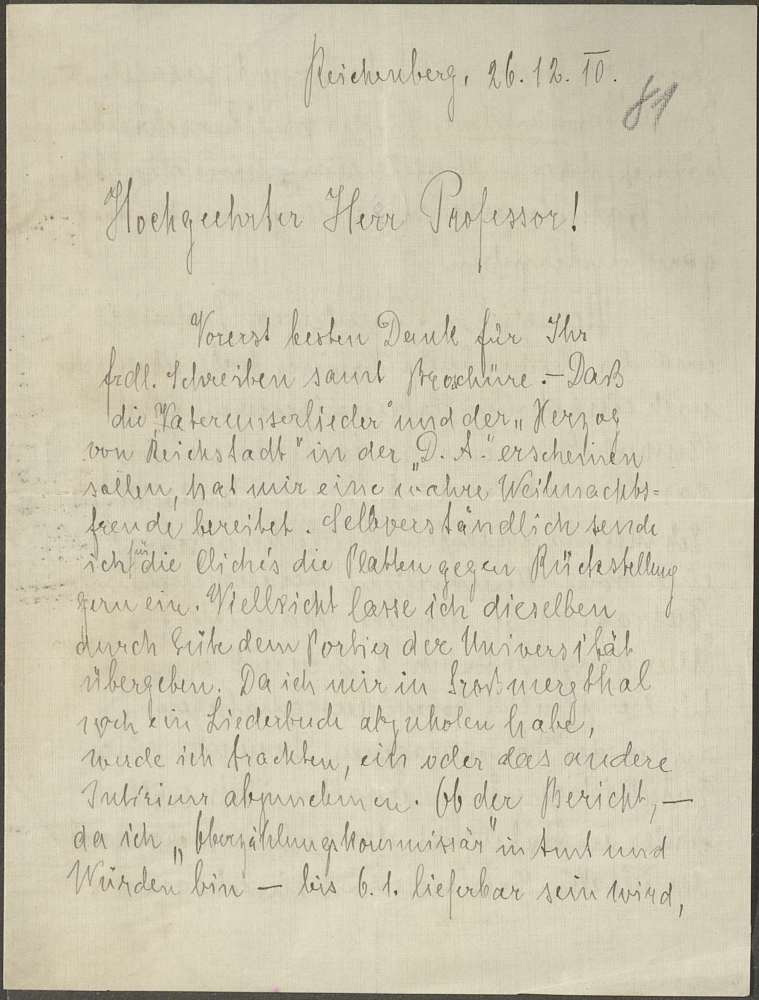 Reichenberg, 26.12.10.
81
Hochgeehrter Herr Professor!
Vorerst besten Dank für Ihr
frdl. Schreiben samt Broschüre. – Daß
die „Vaterunserlieder" und der „Herzog
von Reichstadt" in der „D. A." erscheinen
sollen, hat mir eine wahre Weihnachts=
freude bereitet. Selbverständlich sende
ich für die Clichés die Platten gegen Rückstellung
gern ein. Vielleicht lasse ich dieselben
durch Güte dem Portier der Universität
übergeben. Da ich mir in Großmergthal
noch ein Liederbuch abzuholen habe,
werde ich trachten, ein oder das andere
Intérieur abzunehmen. Ob der Bericht, –
da ich „Oberzählungskommissär" in Amt und
Würden bin – bis 6.1. lieferbar sein wird,